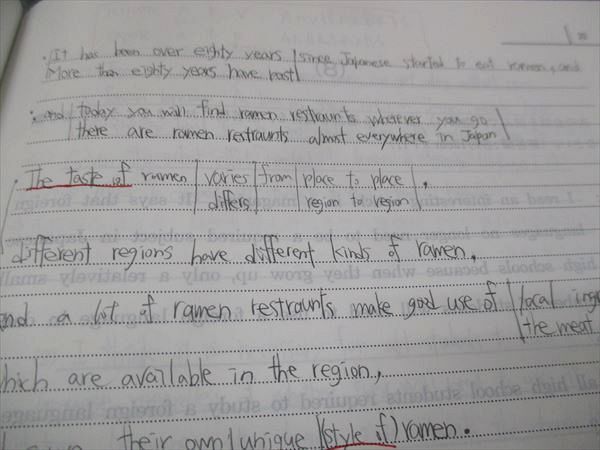 . It has been over eighty years | since Japanese started to eat ramen, and
More than eighty years have past
. and | today you will find ramen restraunts wherever you go
there are ramen restraunts almost everywhere in Japan
. The taste of ramen | varies | from | place to place | ,
differs region to region
different regions have different kinds of ramen,
and a lot of ramen restraunts make good use of | local
the meat
which are available in the region,
their own | unique | (style if) ramen.